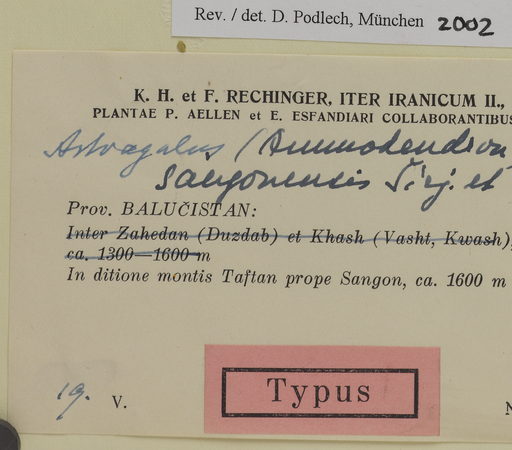 Rev. / det. D. Podlech, München 2002
K. H. et F. RECHINGER, ITER IRANICUM II.,
PLANTAE P. AELLEN et E. ESFANDIARI COLLABORANTIBUS
Astragalus (Ammodendron
sangonensis Širj. et
Prov. BALUČISTAN:
Inter Zahedan (Duzdab) et Khash (Vasht, Kwash),
ca. 1300—1600 m
In ditione montis Taftan prope Sangon, ca. 1600 m
Typus
19. V.
N